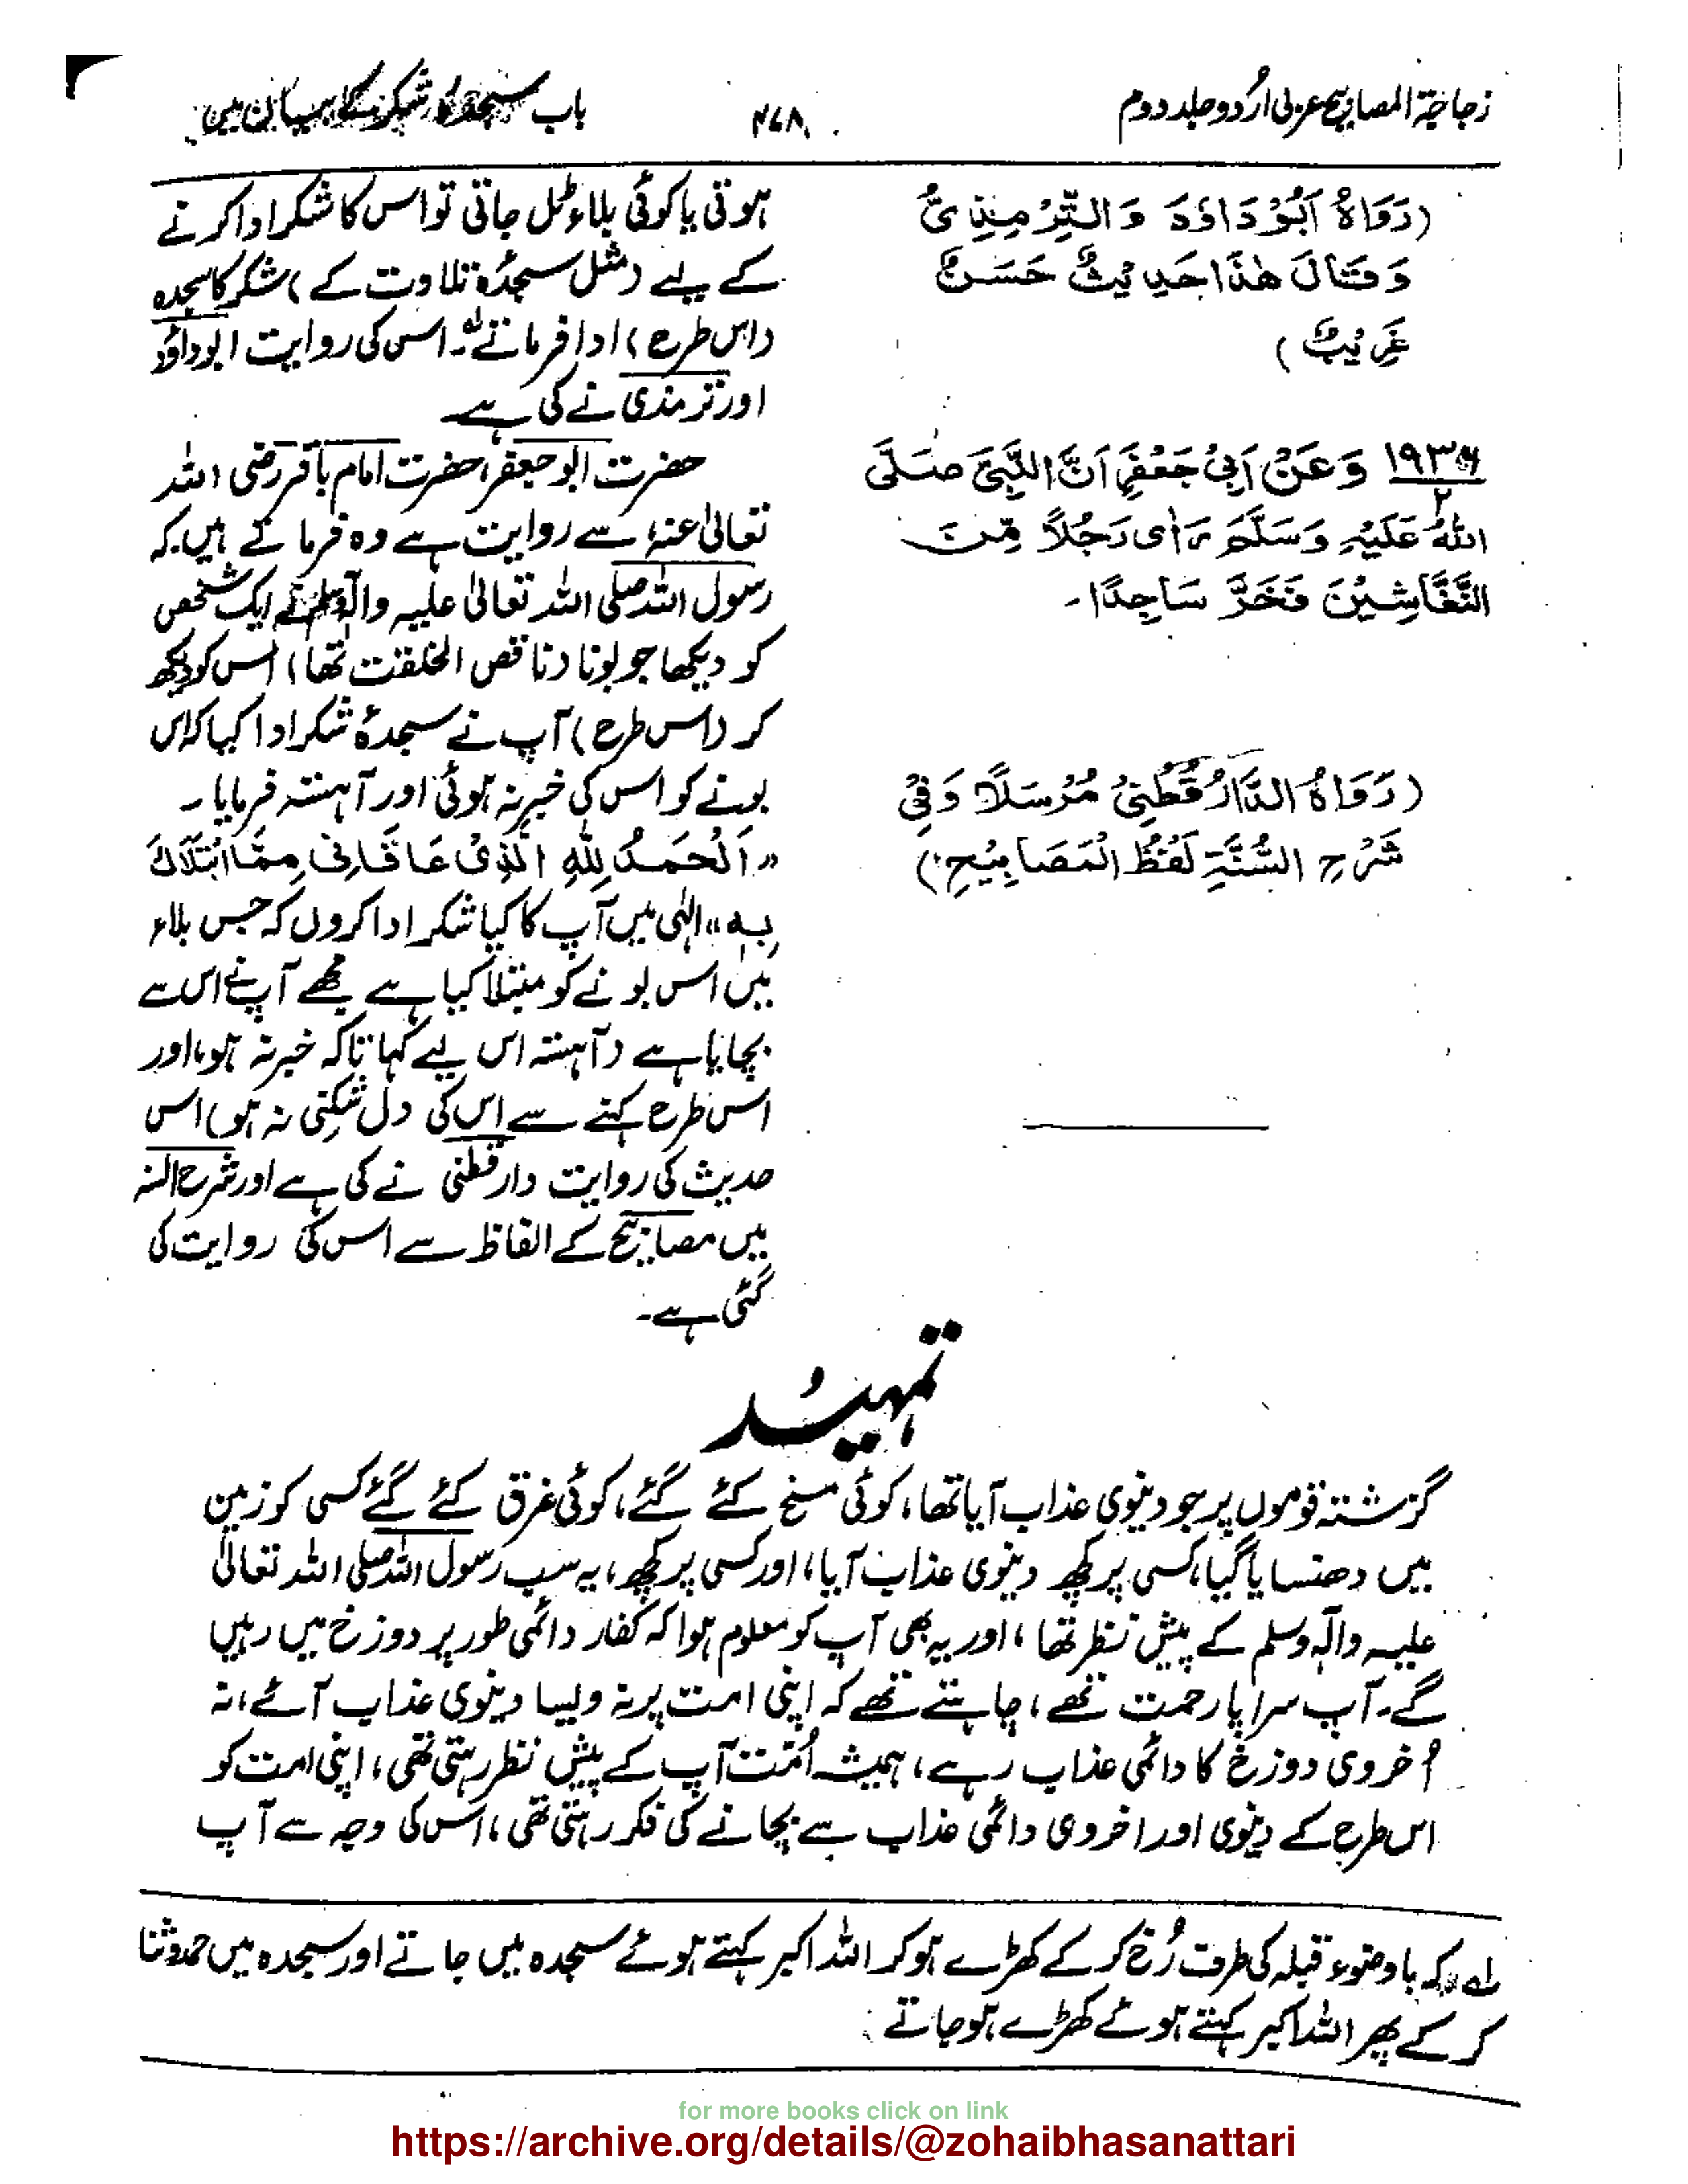 زجاجۃ المصابیح عربی اردو جلد دوم
۴۷۸
باب سجدۂ شکر کے بیان میں
(رَوَاهُ اَبُوْ دَاوٗدَ وَ التِّرْمِذِیُّ
وَ قَالَ هٰذَا حَدِیْثٌ حَسَنٌ
غَرِیْبٌ)
وَ عَنْ اَبِیْ جَعْفَرٍ اَنَّ النَّبِیَّ صَلَّی
اللهُ عَلَیْهِ وَسَلَّمَ رَاٰی رَجُلًا مِّنَ
النَّغَّاشِیْنَ فَخَرَّ سَاجِدًا۔
(رَوَاهُ الدَّارُقُطْنِیُّ مُرْسَلًا وَ فِیْ
شَرْحِ السُّنَّةِ لَفْظُ الْمَصَابِیْحِ)
ہوتی یا کوئی بلاء ٹل جاتی تو اس کا شکر ادا کرنے
کے لیے (مثل سجدۂ تلاوت کے) شکر کا سجدہ
(اس طرح) ادا فرماتے لہ۔ اس کی روایت ابو داؤد
اور ترمذی نے کی ہے۔
حضرت ابو جعفر، حضرت امام باقر رضی اللہ
تعالیٰ عنہ، سے روایت ہے وہ فرماتے ہیں کہ
رسول اللہ صلی اللہ تعالیٰ علیہ وآلہ وسلم نے ایک شخص
کو دیکھا جو بونا (ناقص الخلقت تھا) اس کو دیکھ
کر (اس طرح) آپ نے سجدۂ شکر ادا کیا کہ اس
بونے کو اس کی خبر نہ ہوئی اور آہستہ فرمایا۔
"اَلْحَمْدُ لِلّٰهِ الَّذِیْ عَافَانِیْ مِمَّا ابْتَلَاكَ
بِهٖ" الٰہی میں آپ کا کیا شکر ادا کروں کہ جس بلاء
میں اس بونے کو مبتلا کیا ہے مجھے آپنے اس سے
بچایا ہے (آہستہ اس لیے کہا تاکہ خبر نہ ہو، اور
اس طرح کہنے سے اس کی دل شکنی نہ ہو) اس
حدیث کی روایت دارقطنی نے کی ہے اور شرح السنہ
میں مصابیح کے الفاظ سے اس کی روایت کی
گئی ہے۔
تمہید
گزشتہ قوموں پر جو دنیوی عذاب آیا تھا، کوئی مسخ کئے گئے، کوئی غرق کئے گئے کسی کو زمین
میں دھنسایا گیا، کسی پر کچھ دنیوی عذاب آیا، اور کسی پر کچھ، یہ سب رسول اللہ صلی اللہ تعالیٰ
علیہ وآلہ وسلم کے پیش نظر تھا، اور یہ بھی آپ کو معلوم ہوا کہ کفار دائمی طور پر دوزخ میں رہیں
گے۔ آپ سراپا رحمت تھے، چاہتے تھے کہ اپنی امت پر نہ ویسا دنیوی عذاب آئے، نہ
اُخروی دوزخ کا دائمی عذاب رہے، ہمیشہ اُمّت آپ کے پیش نظر رہتی تھی، اپنی امت کو
اس طرح کے دنیوی اور اخروی دائمی عذاب سے بچانے کی فکر رہتی تھی، اس کی وجہ سے آپ
لہ کہ با وضوء قبلہ کی طرف رُخ کر کے کھڑے ہو کر اللہ اکبر کہتے ہوئے سجدہ میں جاتے اور سجدہ میں حمد و ثنا
کر کے پھر اللہ اکبر کہتے ہوئے کھڑے ہو جاتے
for more books click on link
https://archive.org/details/@zohaibhasanattari